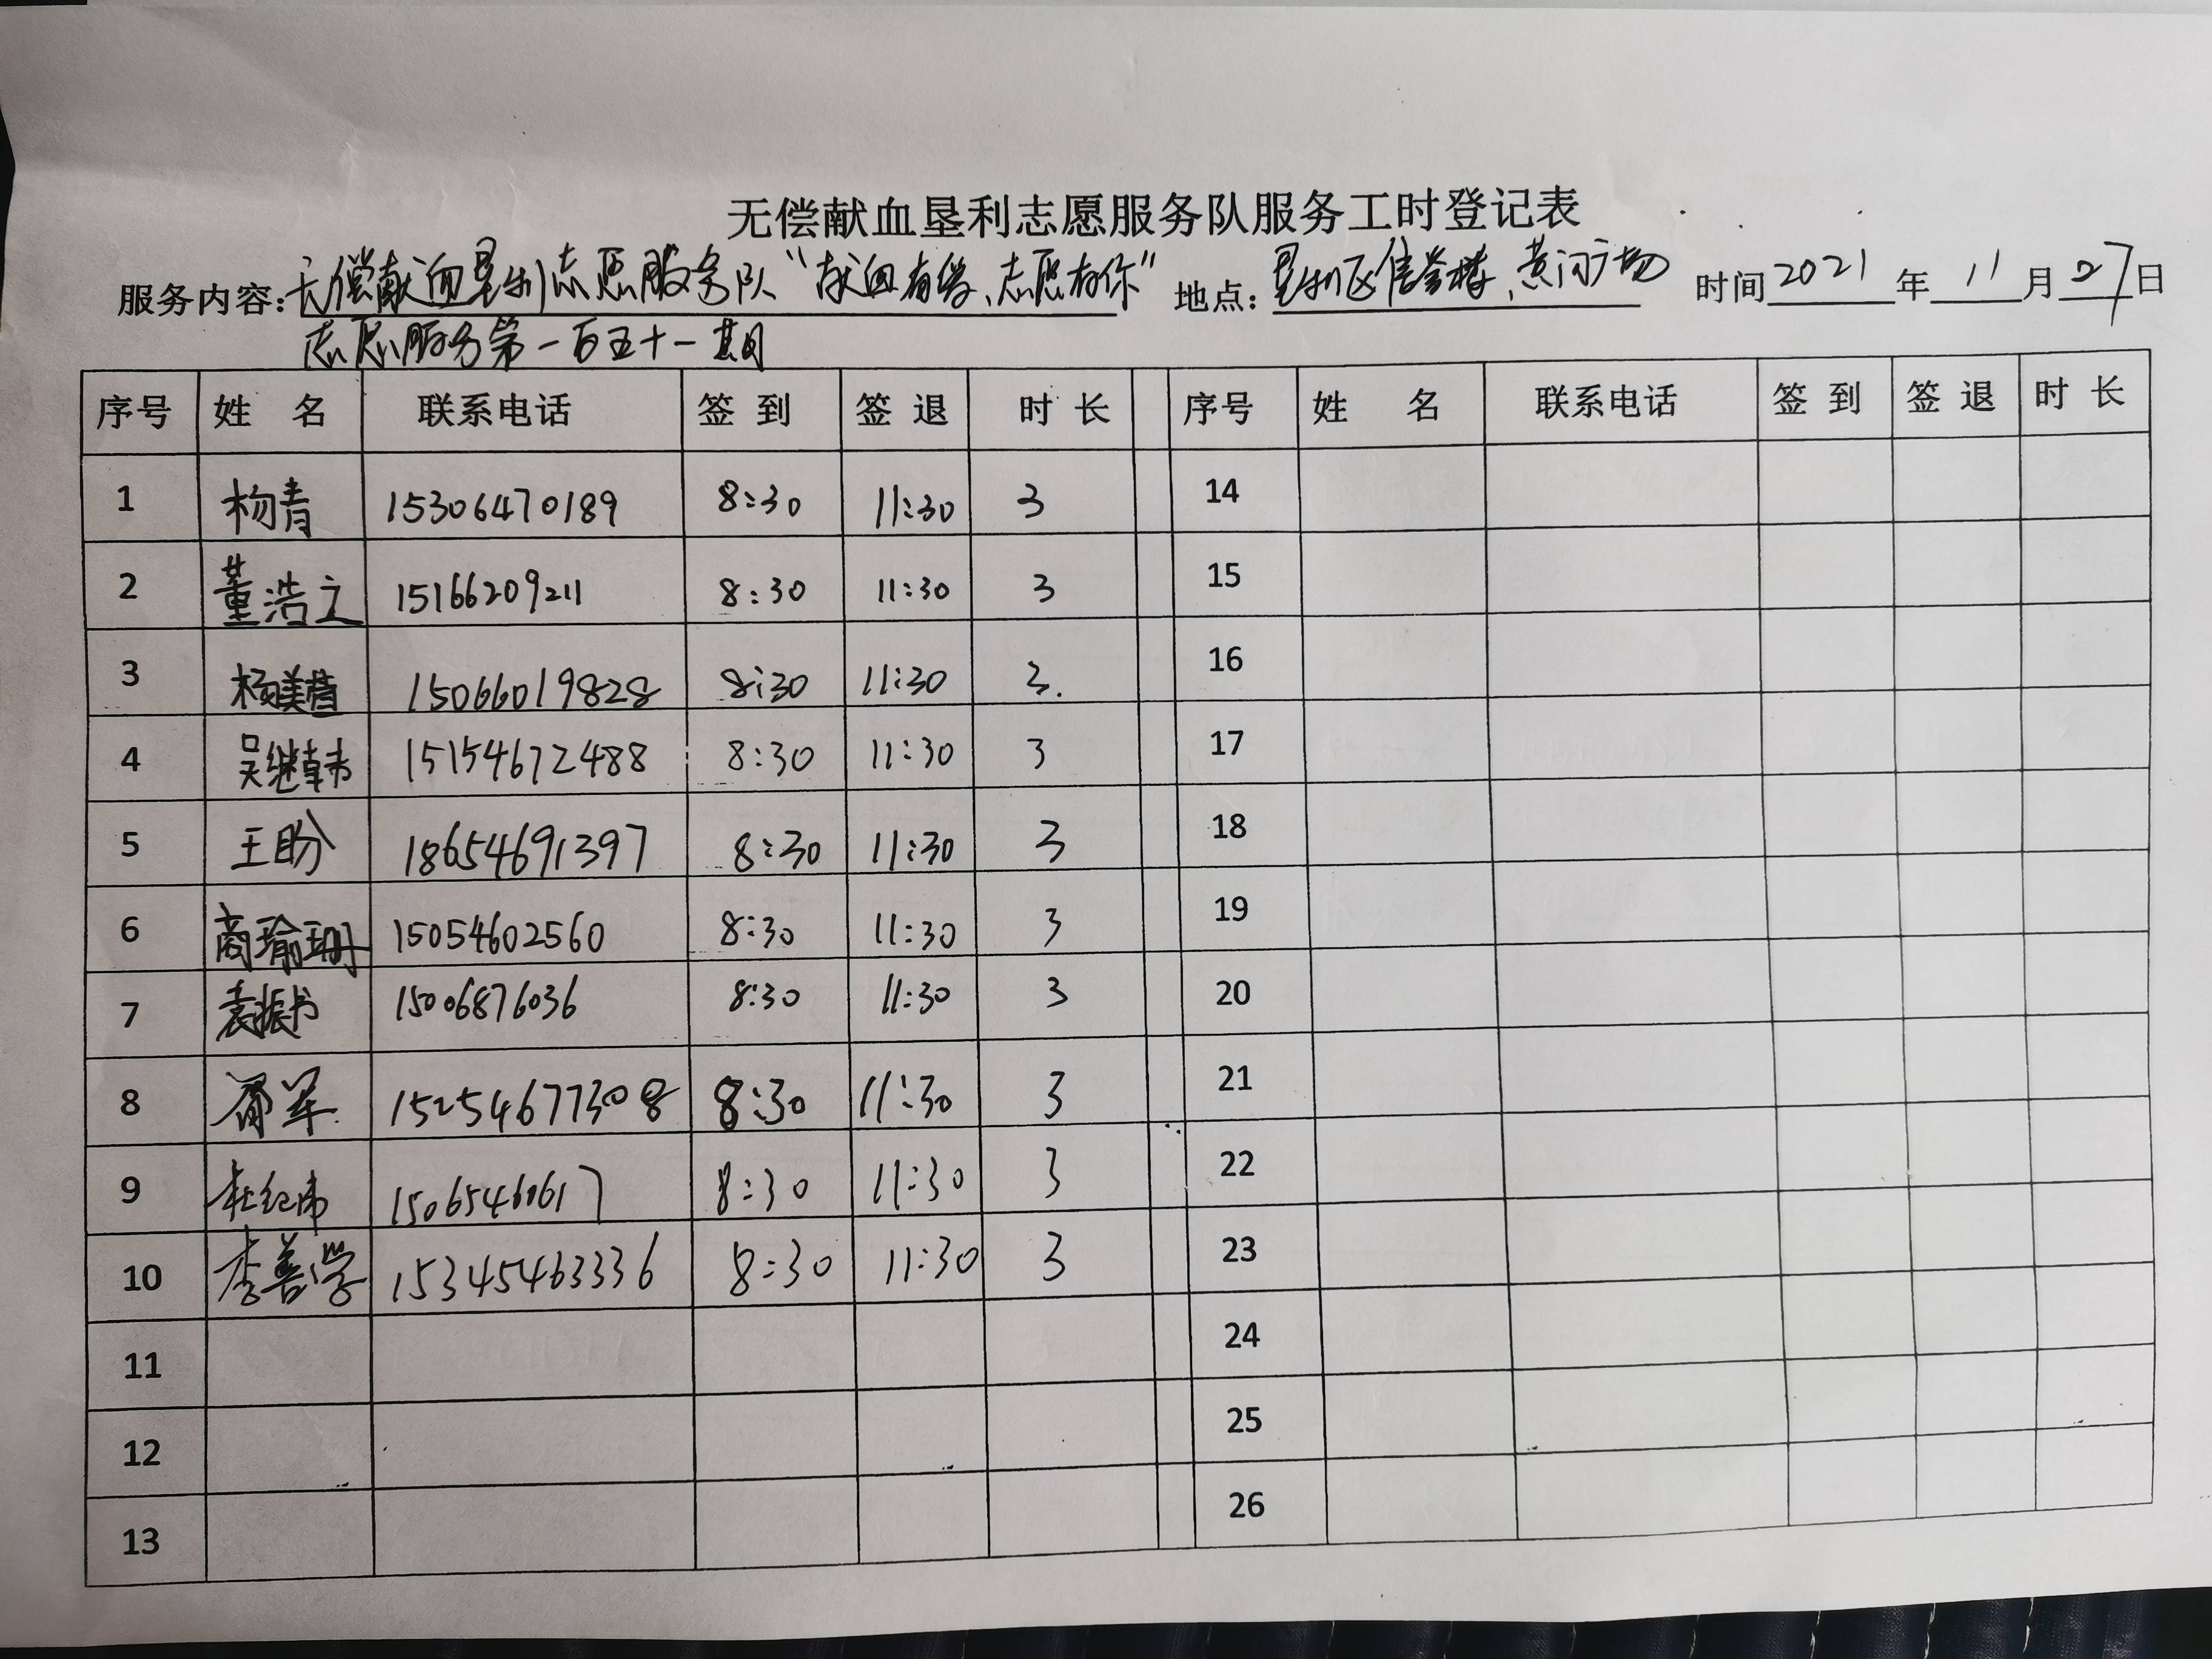 无偿献血垦利志愿服务队服务工时登记表
服务内容：无偿献血垦利志愿服务队“献血有爱、志愿有你” 地点：垦利区信誉楼、黄河广场 时间 2021 年 11 月 27 日
志愿服务第一百五十一期
序号 姓 名 联系电话 签 到 签 退 时 长 序号 姓 名 联系电话 签 到 签 退 时 长
1 杨青 15306470189 8:30 11:30 3 14
2 董浩立 15166209211 8:30 11:30 3 15
3 杨美营 15066019828 8:30 11:30 3. 16
4 吴继韩 15154672488 8:30 11:30 3 17
5 王盼 18654691397 8:30 11:30 3 18
6 商瑜珊 15054602560 8:30 11:30 3 19
7 袁振书 15006876036 8:30 11:30 3 20
8 军 15254677308 8:30 11:30 3 21
9 杜纪伟 15065460617 8:30 11:30 3 22
10 李善学 15345463336 8:30 11:30 3 23
11 24
12 25
13 26